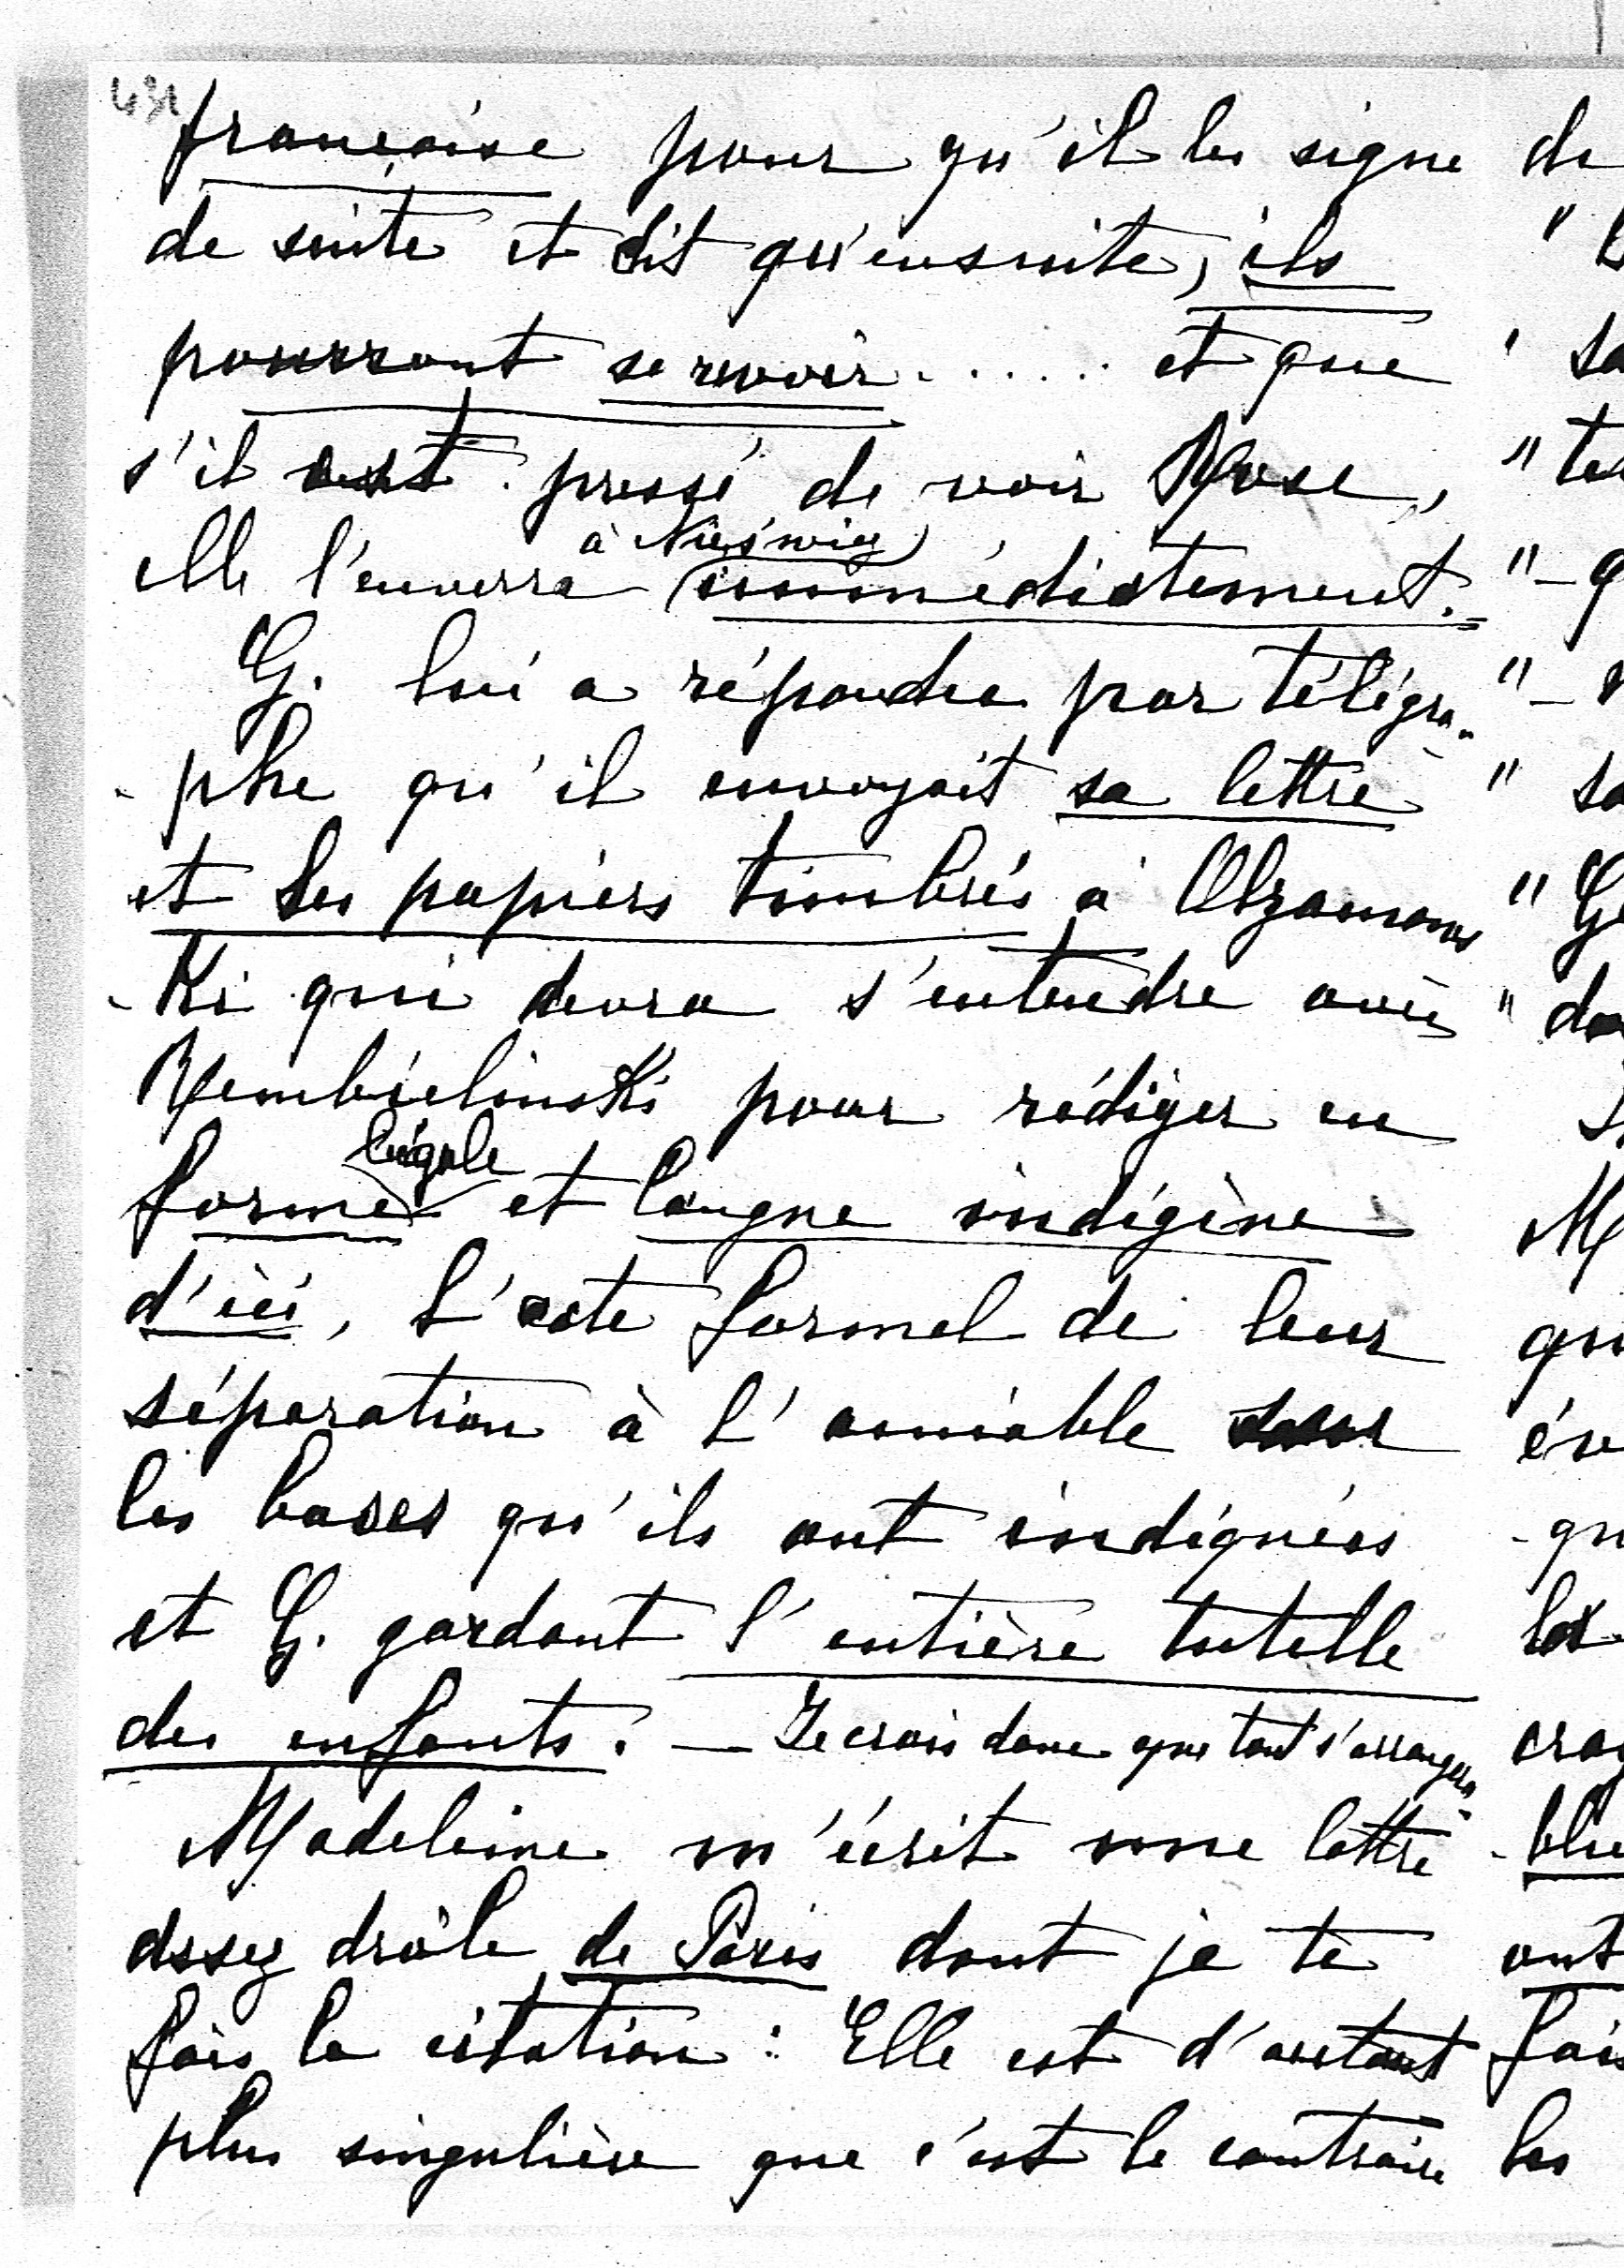 431
française pour qu'il les signe
de suite et dit qu'ensuite, ils
pourront se revoir...... et que
s'il est pressé de voir Rose,
elle l'enverra (à Nieśwież) immédiatement.
G. lui a répondu par télégra-
-phe qu'il envoyait sa lettre
et les papiers timbrés à Abzamows
-Ki qui devra s'entendre avec
Rembielinski pour rédiger en
forme légale et langue indigène
d'ici, l'acte formel de leur
séparation à l'amiable sur
les bases qu'ils ont indiquées
et G. gardant l'entière tutelle
des enfants. — Je crois donc que tout s'arrangera.
Madeleine m'écrit une lettre
assez drôle de Paris dont je te
fais la citation : Elle est d'autant
plus singulière que c'est le contraire